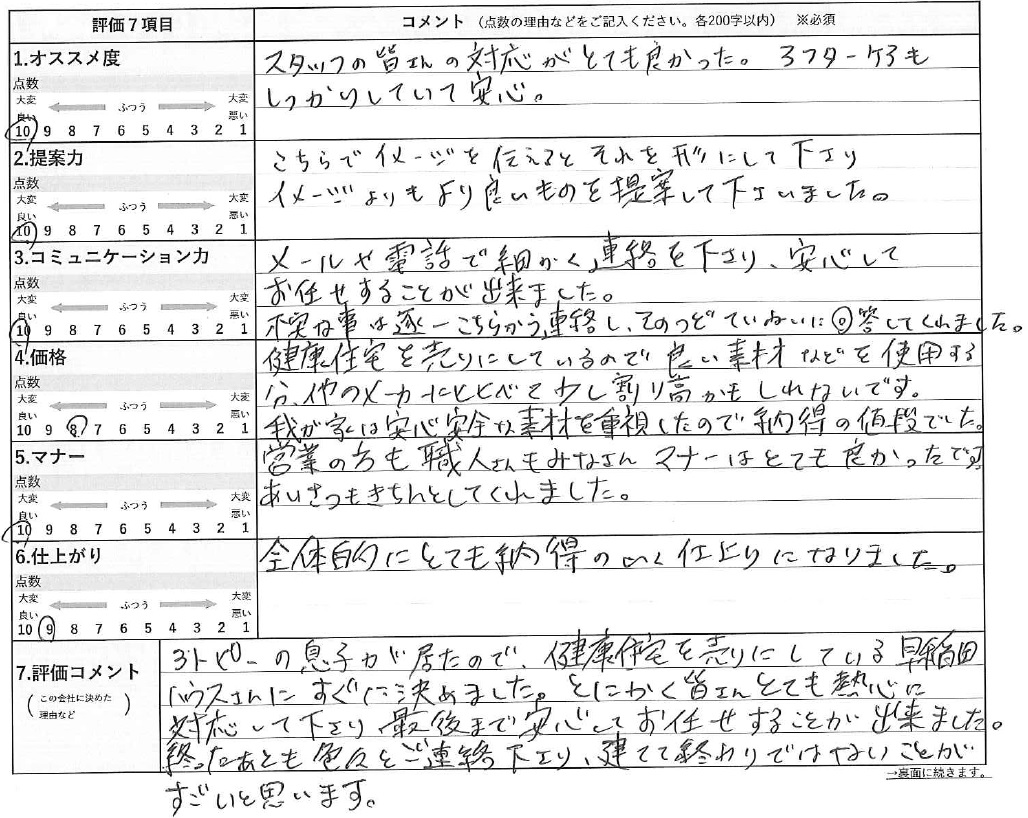 評価7項目
コメント（点数の理由などをご記入ください。各200字以内） ※必須
1.オススメ度
点数
大変良い ふつう 大変悪い
10 9 8 7 6 5 4 3 2 1
スタッフの皆さんの対応がとても良かった。アフターケアも
しっかりしていて安心。
2.提案力
点数
大変良い ふつう 大変悪い
10 9 8 7 6 5 4 3 2 1
こちらでイメージを伝えるとそれを形にして下さり
イメージよりもより良いものを提案して下さいました。
3.コミュニケーション力
点数
大変良い ふつう 大変悪い
10 9 8 7 6 5 4 3 2 1
メールや電話で細かく連絡を下さり、安心して
お任せすることが出来ました。
不安な事は逐一こちらから連絡し、そのつどていねいに回答してくれました。
4.価格
点数
大変良い ふつう 大変悪い
10 9 8 7 6 5 4 3 2 1
健康住宅を売りにしているので良い素材などを使用する
分、他のメーカーにくらべて少し割り高かもしれないです。
我が家は安心安全な素材を重視したので納得の値段でした。
5.マナー
点数
大変良い ふつう 大変悪い
10 9 8 7 6 5 4 3 2 1
営業の方も職人さんもみなさんマナーはとても良かったです。
あいさつもきちんとしてくれました。
6.仕上がり
点数
大変良い ふつう 大変悪い
10 9 8 7 6 5 4 3 2 1
全体的にとても納得のいく仕上りになりました。
7.評価コメント
（この会社に決めた理由など）
アトピーの息子が居たので、健康住宅を売りにしている早稲田
ハウスさんにすぐに決めました。とにかく皆さんとても熱心に
対応して下さり、最後まで安心してお任せすることが出来ました。
終ったあとも色々とご連絡下さり、建てて終わりではないことが
すごいと思います。
→裏面に続きます。